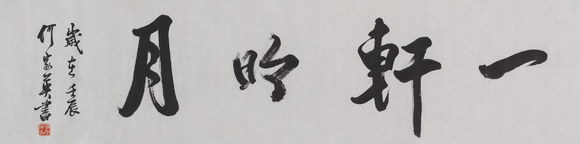 一軒明月
歲在壬辰
何家英書